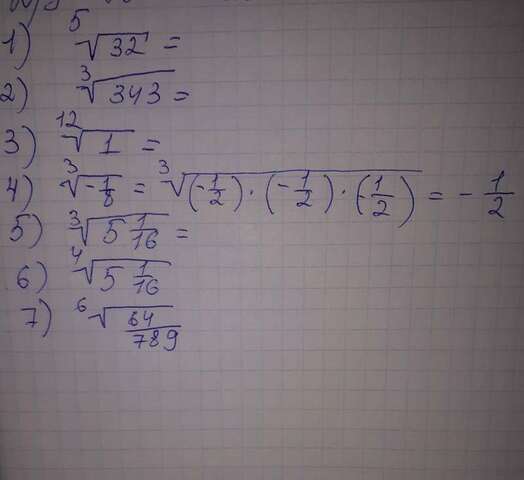 1) ⁵√32 =
2) ³√343 =
3) ¹²√1 =
4) ³√-1/8 = ³√(-1/2)·(-1/2)·(-1/2) = -1/2
5) ³√5 1/16 =
6) ⁴√5 1/16
7) ⁶√64/789